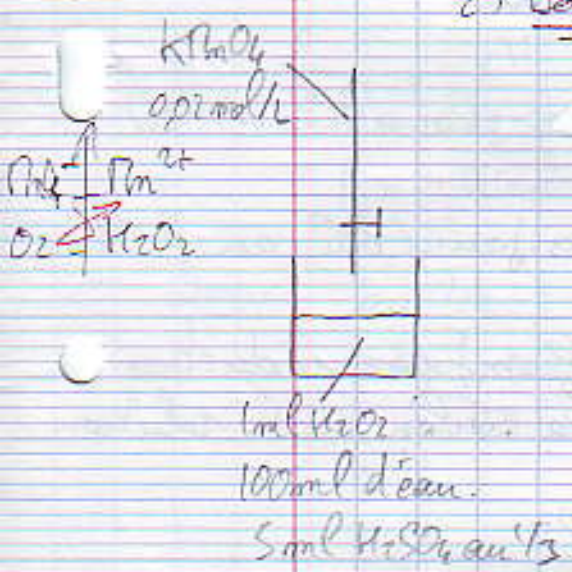 KMnO4
0,02 mol/L
MnO4⁻ Mn²⁺
O2 H2O2
1 ml H2O2
100 ml d'eau.
5 ml H2SO4 au 1/3